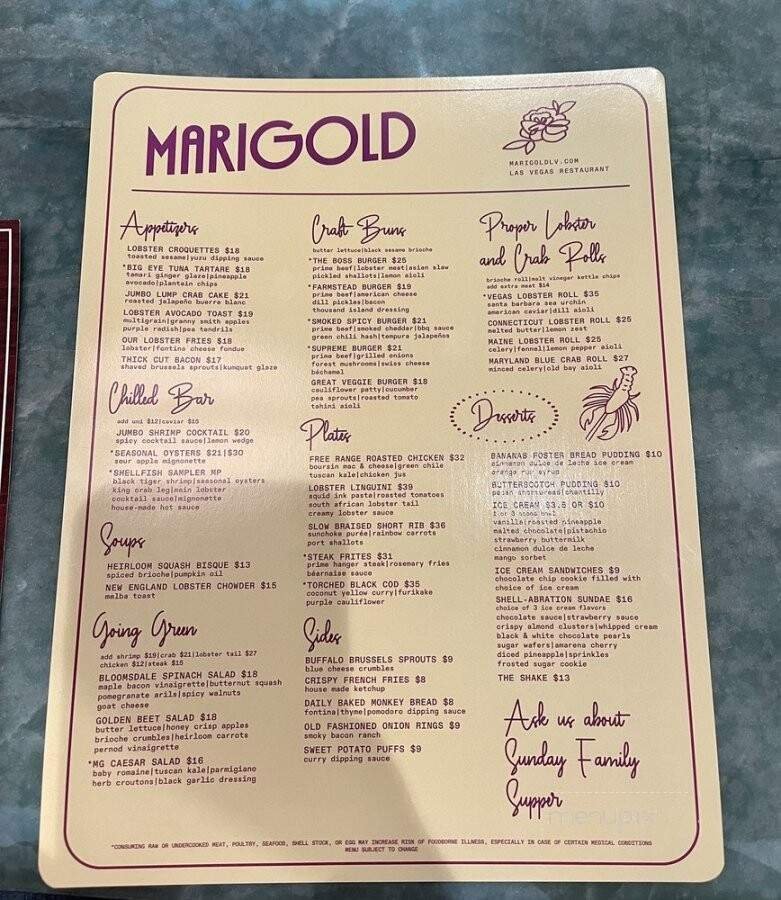 MARIGOLD
MARIGOLDLV.COM
LAS VEGAS RESTAURANT
Appetizers
LOBSTER CROQUETTES $18
toasted sesame|yuzu dipping sauce
*BIG EYE TUNA TARTARE $18
tamari ginger glaze|pineapple
avocado|plantain chips
JUMBO LUMP CRAB CAKE $21
roasted jalapeño buerre blanc
LOBSTER AVOCADO TOAST $19
multigrain|granny smith apples
purple radish|pea tendrils
OUR LOBSTER FRIES $18
lobster|fontina cheese fondue
THICK CUT BACON $17
shaved brussels sprouts|kumquat glaze
Chilled Bar
add uni $12|caviar $15
JUMBO SHRIMP COCKTAIL $20
spicy cocktail sauce|lemon wedge
*SEASONAL OYSTERS $21|$30
sour apple mignonette
*SHELLFISH SAMPLER MP
black tiger shrimp|seasonal oysters
king crab leg|main lobster
cocktail sauce|mignonette
house-made hot sauce
Soups
HEIRLOOM SQUASH BISQUE $13
spiced brioche|pumpkin oil
NEW ENGLAND LOBSTER CHOWDER $15
melba toast
Going Green
add shrimp $19|crab $21|lobster tail $27
chicken $12|steak $15
BLOOMSDALE SPINACH SALAD $18
maple bacon vinaigrette|butternut squash
pomegranate arils|spicy walnuts
goat cheese
GOLDEN BEET SALAD $18
butter lettuce|honey crisp apples
brioche crumbles|heirloom carrots
pernod vinaigrette
*MG CAESAR SALAD $16
baby romaine|tuscan kale|parmigiano
herb croutons|black garlic dressing
Craft Buns
butter lettuce|black sesame brioche
*THE BOSS BURGER $25
prime beef|lobster meat|asian slaw
pickled shallots|lemon aioli
*FARMSTEAD BURGER $19
prime beef|american cheese
dill pickles|bacon
thousand island dressing
*SMOKED SPICY BURGER $21
prime beef|smoked cheddar|bbq sauce
green chili hash|tempura jalapeños
*SUPREME BURGER $21
prime beef|grilled onions
forest mushrooms|swiss cheese
béchamel
GREAT VEGGIE BURGER $18
cauliflower patty|cucumber
pea sprouts|roasted tomato
tahini aioli
Plates
FREE RANGE ROASTED CHICKEN $32
boursin mac & cheese|green chile
tuscan kale|chicken jus
LOBSTER LINGUINI $39
squid ink pasta|roasted tomatoes
south african lobster tail
creamy lobster sauce
SLOW BRAISED SHORT RIB $36
sunchoke purée|rainbow carrots
port shallots
*STEAK FRITES $31
prime hanger steak|rosemary fries
béarnaise sauce
*TORCHED BLACK COD $35
coconut yellow curry|furikake
purple cauliflower
Sides
BUFFALO BRUSSELS SPROUTS $9
blue cheese crumbles
CRISPY FRENCH FRIES $8
house made ketchup
DAILY BAKED MONKEY BREAD $8
fontina|thyme|pomodoro dipping sauce
OLD FASHIONED ONION RINGS $9
smoky bacon ranch
SWEET POTATO PUFFS $9
curry dipping sauce
Proper Lobster
and Crab Rolls
brioche roll|malt vinegar kettle chips
add extra meat $14
*VEGAS LOBSTER ROLL $35
santa barbara sea urchin
american caviar|dill aioli
CONNECTICUT LOBSTER ROLL $25
melted butter|lemon zest
MAINE LOBSTER ROLL $25
celery|fennel|lemon pepper aioli
MARYLAND BLUE CRAB ROLL $27
minced celery|old bay aioli
Desserts
BANANAS FOSTER BREAD PUDDING $10
cinnamon dulce de leche ice cream
orange rum syrup
BUTTERSCOTCH PUDDING $10
pecan shortbread|chantilly
ICE CREAM $3.5 OR $10
vanilla|roasted pineapple
malted chocolate|pistachio
strawberry buttermilk
cinnamon dulce de leche
mango sorbet
ICE CREAM SANDWICHES $9
chocolate chip cookie filled with
choice of ice cream
SHELL-ABRATION SUNDAE $16
choice of 3 ice cream flavors
chocolate sauce|strawberry sauce
crispy almond clusters|whipped cream
black & white chocolate pearls
sugar wafers|amarena cherry
diced pineapple|sprinkles
frosted sugar cookie
THE SHAKE $13
Ask us about
Sunday Family
Supper
*CONSUMING RAW OR UNDERCOOKED MEAT, POULTRY, SEAFOOD, SHELL STOCK, OR EGG MAY INCREASE RISK OF FOODBORNE ILLNESS, ESPECIALLY IN CASE OF CERTAIN MEDICAL CONDITIONS
MENU SUBJECT TO CHANGE